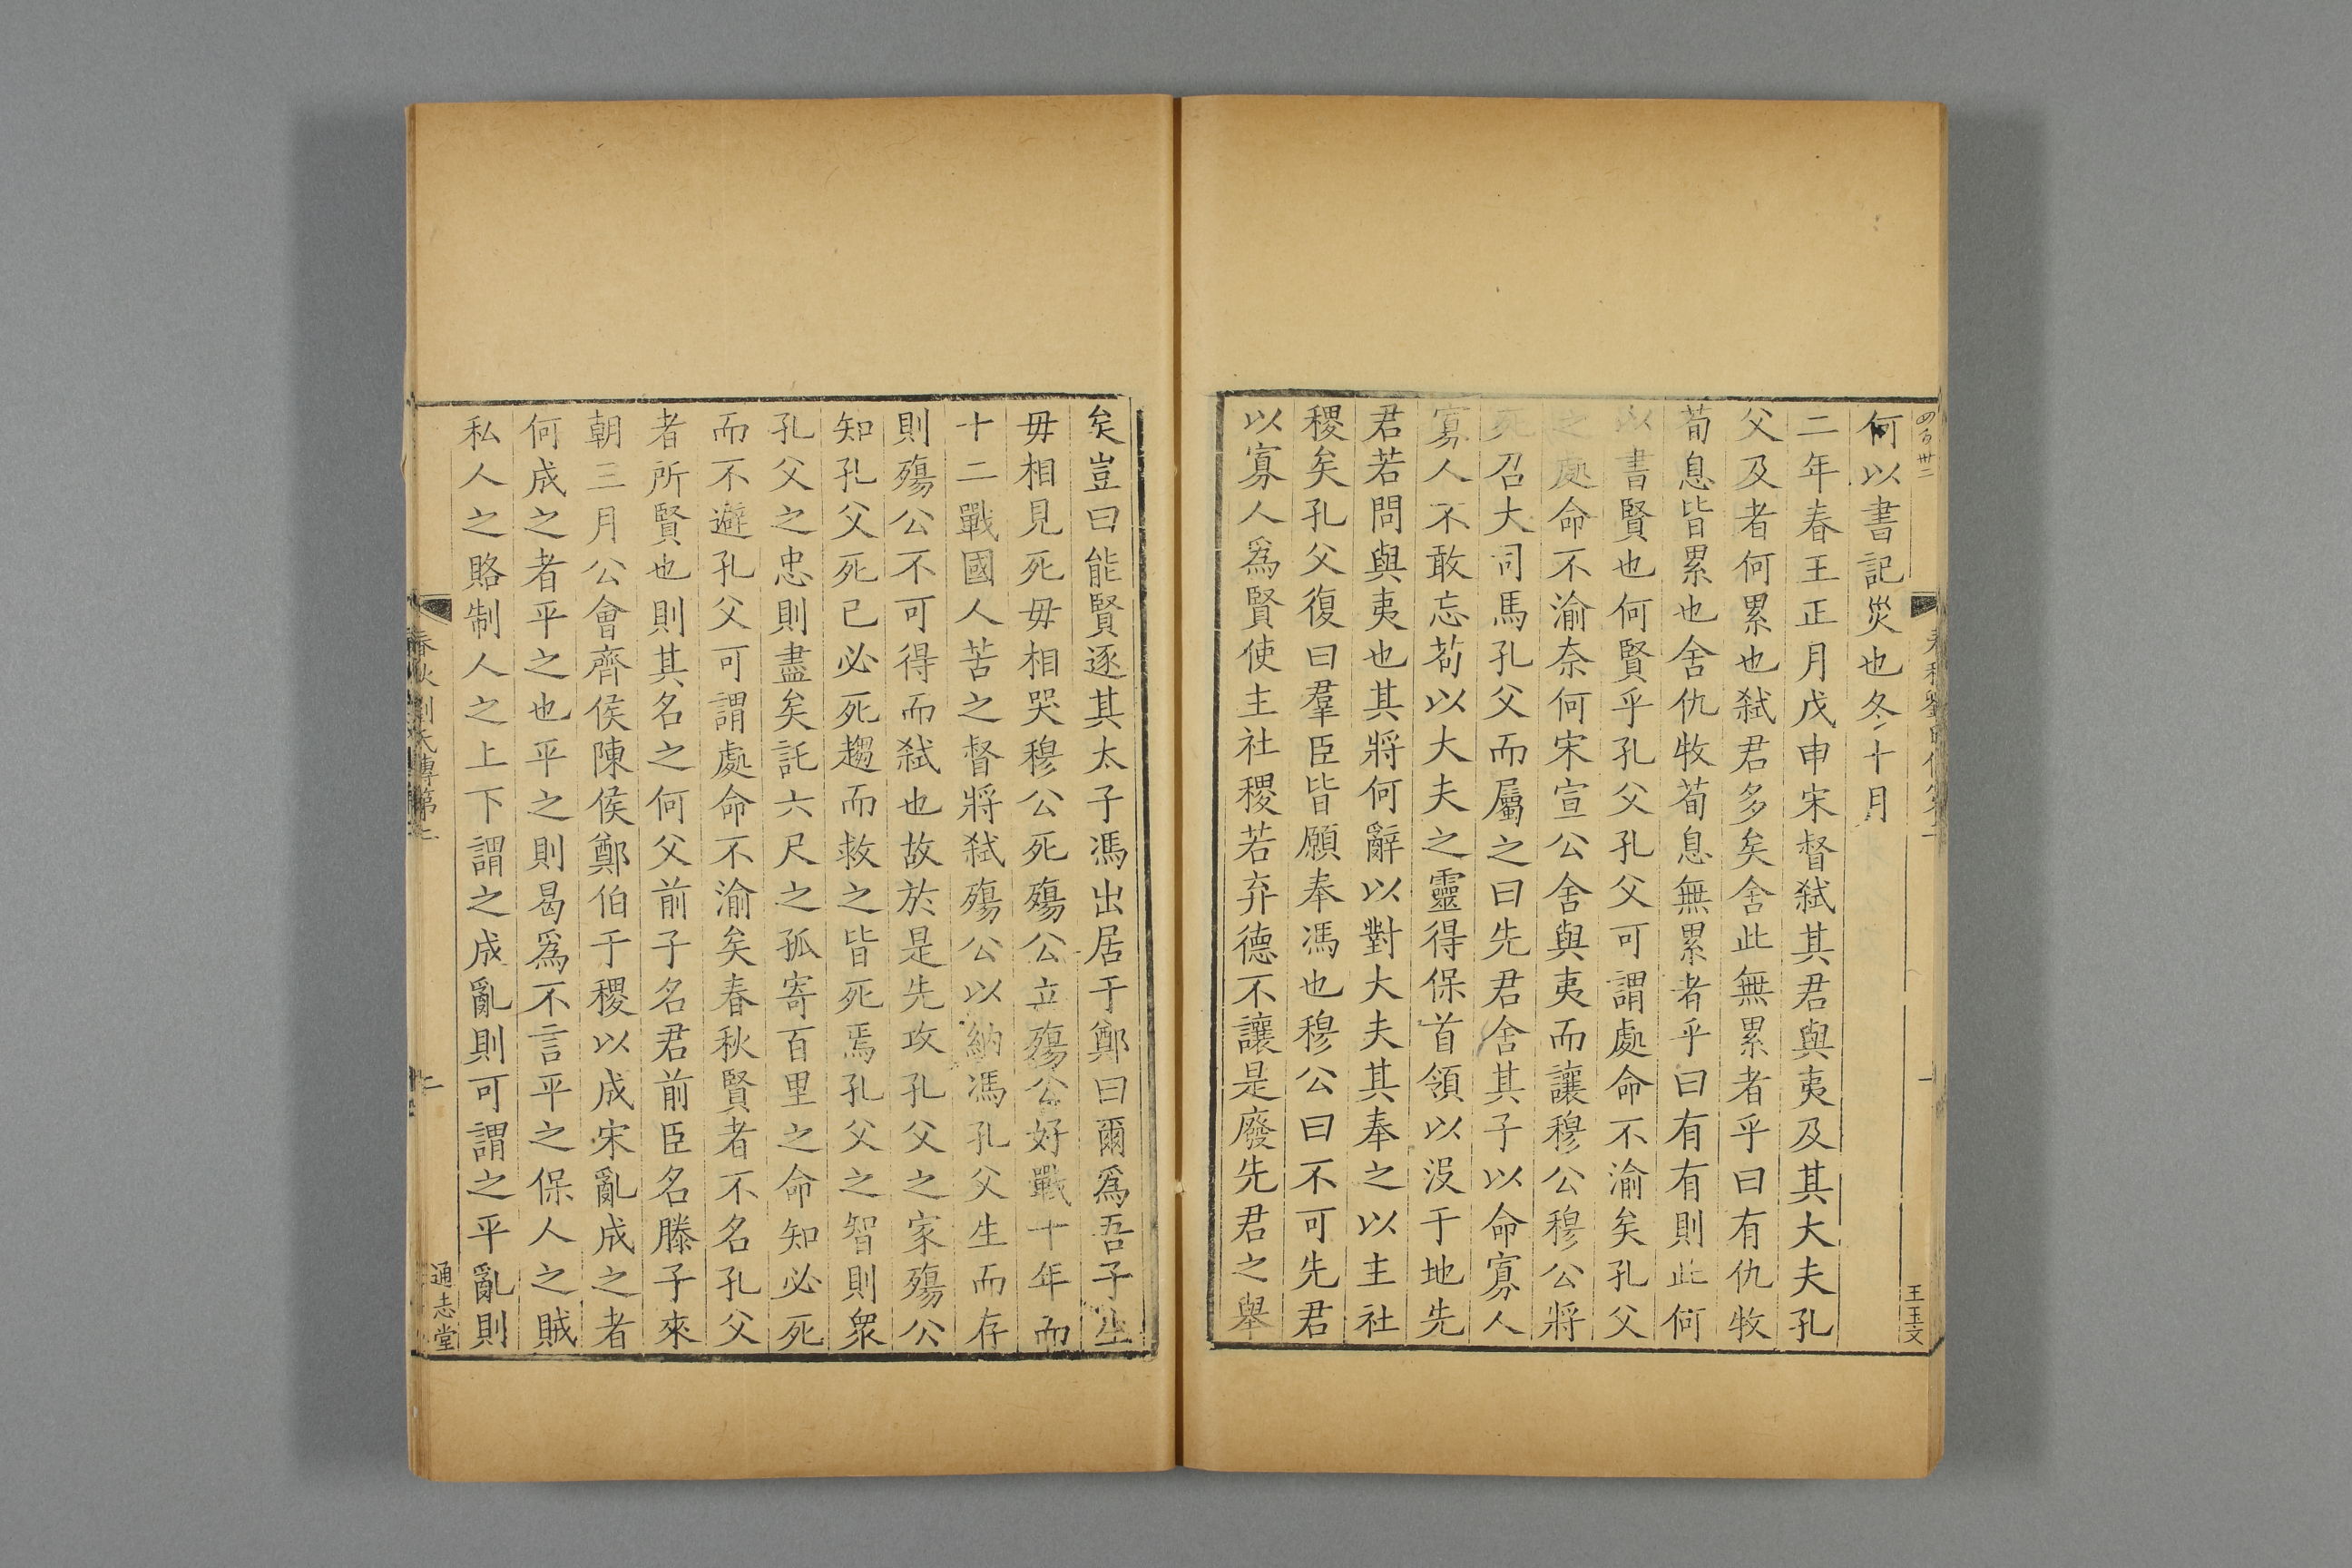 四百卅二
王玉文
何以書記災也冬十月
二年春王正月戊申宋督弒其君與夷及其大夫孔
父及者何累也弒君多矣舍此無累者乎曰有仇牧
荀息皆累也舍仇牧荀息無累者乎曰有有則此何
以書賢也何賢乎孔父孔父可謂處命不渝矣孔父
之處命不渝奈何宋宣公舍與夷而讓穆公穆公將
死召大司馬孔父而屬之曰先君舍其子以命寡人
寡人不敢忘茍以大夫之靈得保首領以沒于地先
君若問與夷也其將何辭以對大夫其奉之以主社
稷矣孔父復曰羣臣皆願奉馮也穆公曰不可先君
以寡人爲賢使主社稷若弃德不讓是廢先君之舉
矣豈曰能賢逐其太子馮出居于鄭曰爾爲吾子生
毋相見死毋相哭穆公死殤公立殤公好戰十年而
十二戰國人苦之督將弒殤公以納馮孔父生而存
則殤公不可得而弒也故於是先攻孔父之家殤公
知孔父死已必死趨而救之皆死焉孔父之智則衆
孔父之忠則盡矣託六尺之孤寄百里之命知必死
而不避孔父可謂處命不渝矣春秋賢者不名孔父
者所賢也則其名之何父前子名君前臣名滕子來
朝三月公會齊侯陳侯鄭伯于稷以成宋亂成之者
何成之者平之也平之則曷爲不言平之保人之賊
私人之賂制人之上下謂之成亂則可謂之平亂則
春秋劉氏傳第二
二
通志堂